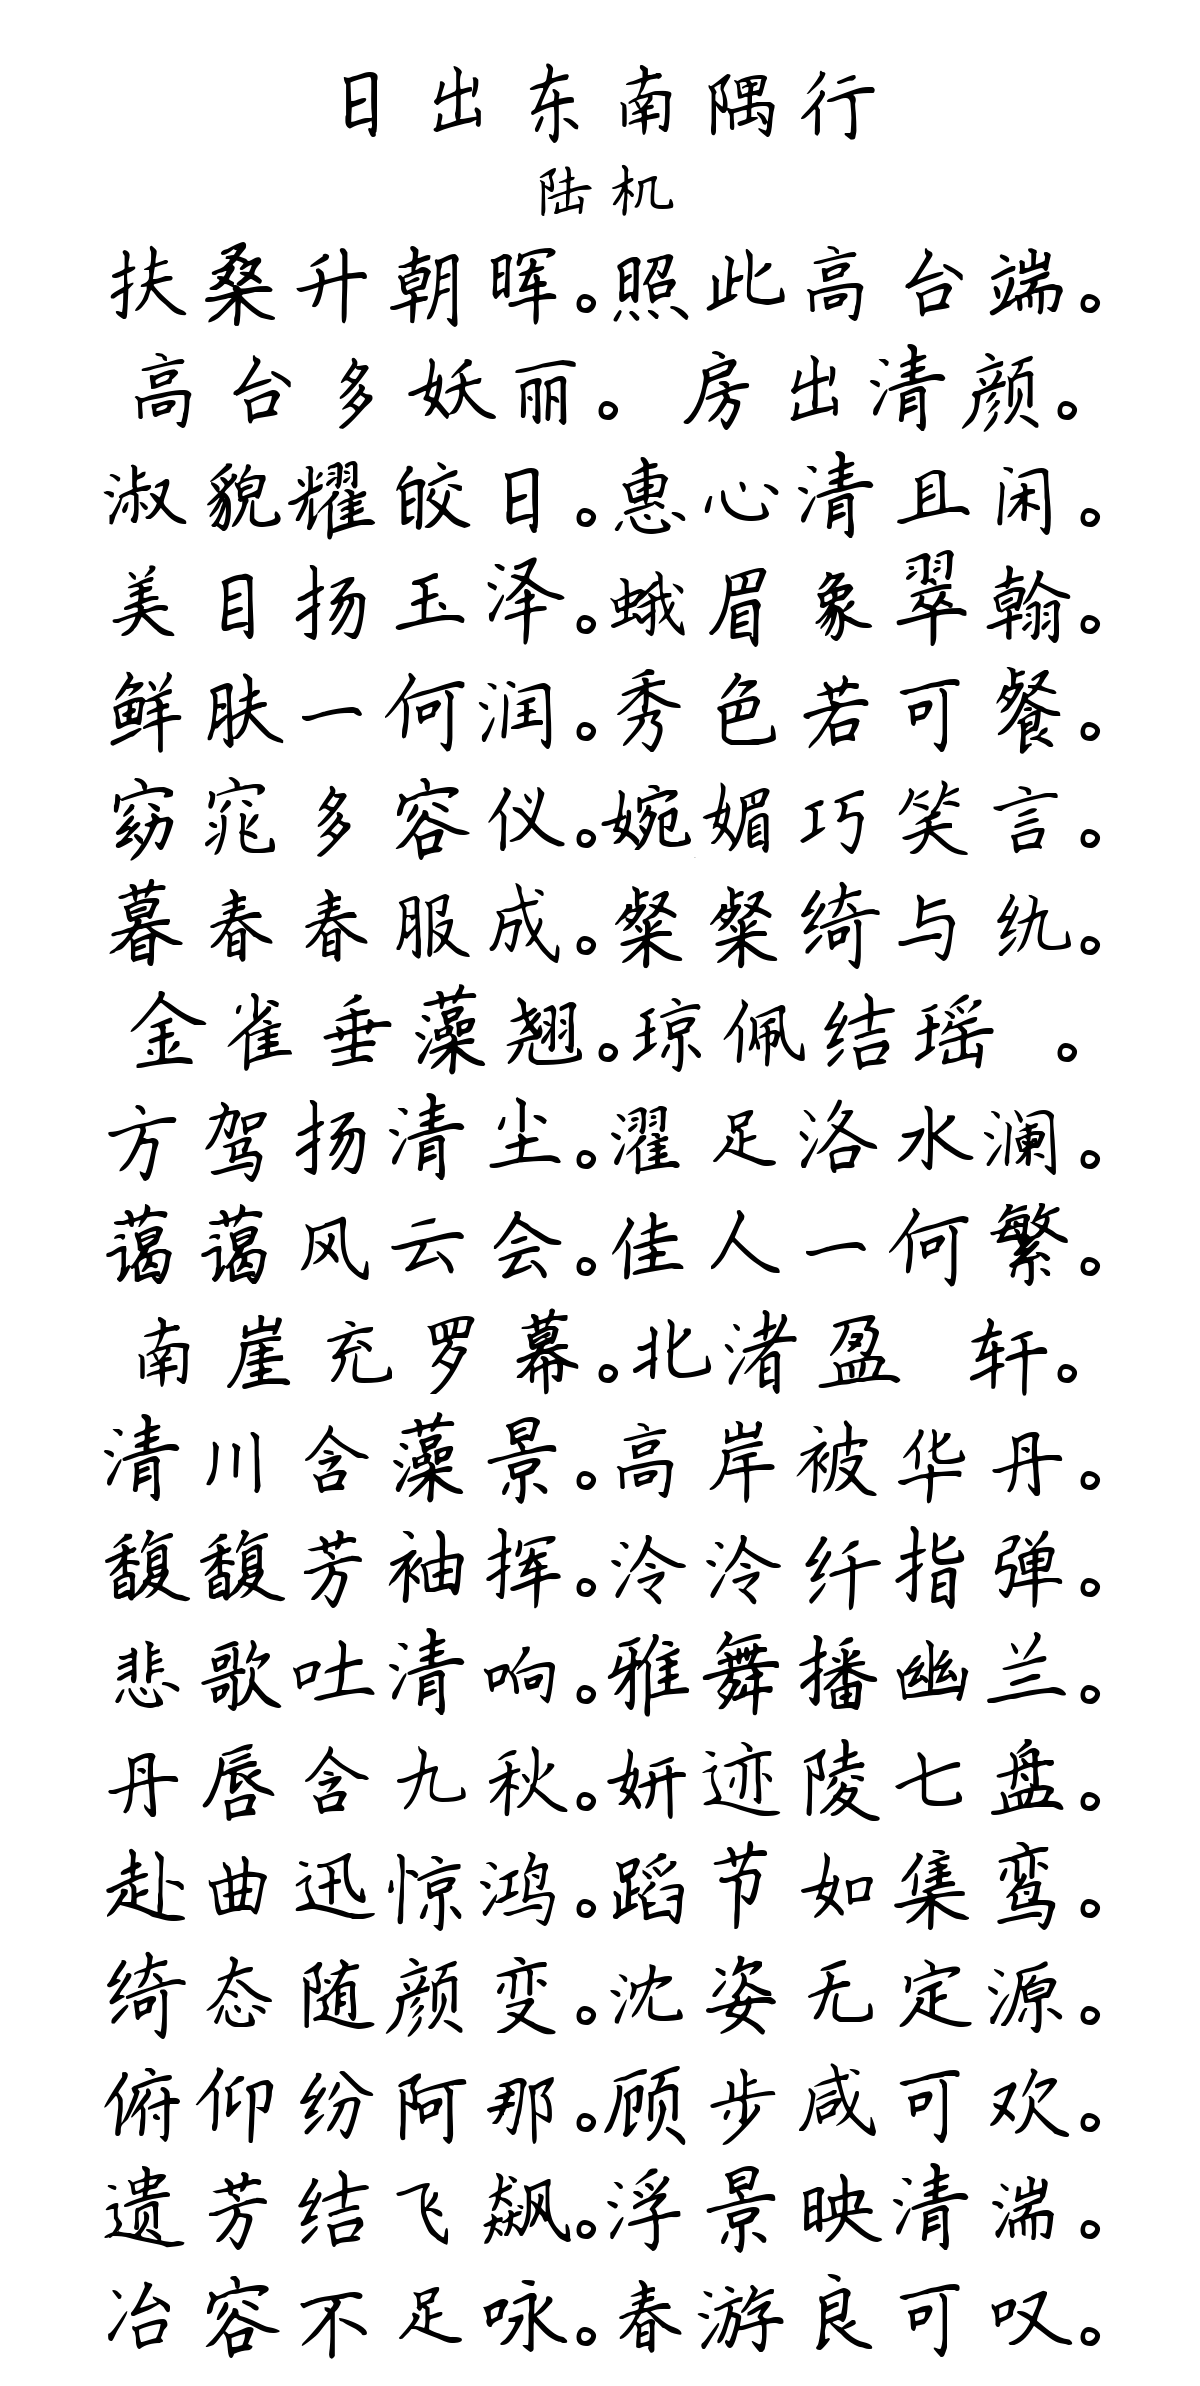 日出东南隅行
陆机
扶桑升朝晖。照此高台端。
高台多妖丽。房出清颜。
淑貌耀皎日。惠心清且闲。
美目扬玉泽。蛾眉象翠翰。
鲜肤一何润。秀色若可餐。
窈窕多容仪。婉媚巧笑言。
暮春春服成。粲粲绮与纨。
金雀垂藻翘。琼佩结瑶 。
方驾扬清尘。濯足洛水澜。
蔼蔼风云会。佳人一何繁。
南崖充罗幕。北渚盈 轩。
清川含藻景。高岸被华丹。
馥馥芳袖挥。泠泠纤指弹。
悲歌吐清响。雅舞播幽兰。
丹唇含九秋。妍迹陵七盘。
赴曲迅惊鸿。蹈节如集鸾。
绮态随颜变。沈姿无定源。
俯仰纷阿那。顾步咸可欢。
遗芳结飞飙。浮景映清湍。
冶容不足咏。春游良可叹。